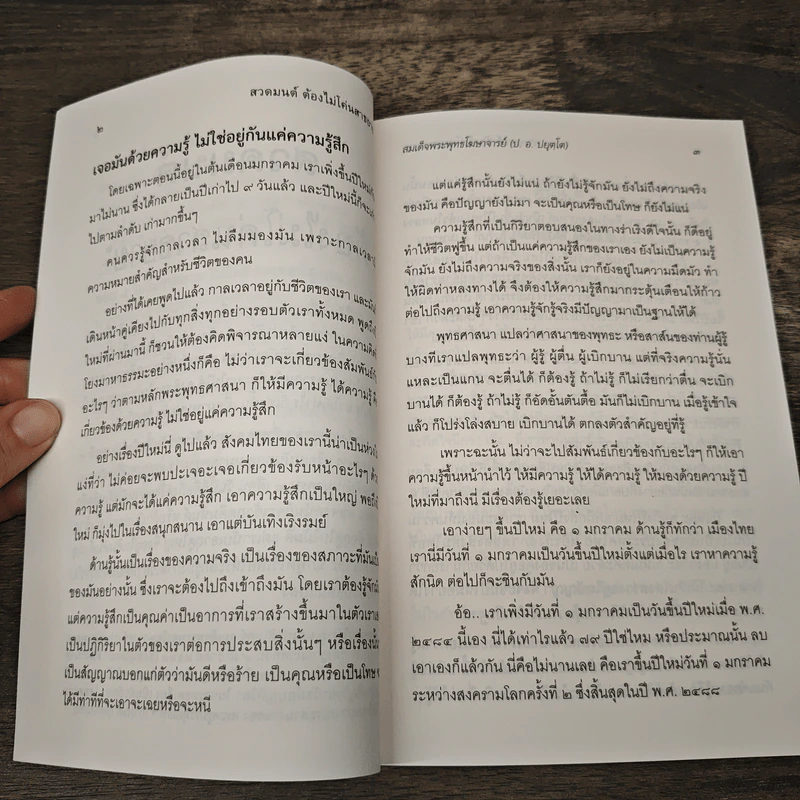 ๒
สวดมนต์ ต้องไม่โค่นสาธยาย
เจอมันด้วยความรู้ ไม่ใช่อยู่กันแค่ความรู้สึก
โดยเฉพาะตอนนี้อยู่ในต้นเดือนมกราคม เราเพิ่งขึ้นปีใหม่
มาไม่นาน ซึ่งได้กลายเป็นปีเก่าไป ๙ วันแล้ว และปีใหม่นี้ก็จะ
ไปตามลำดับ เก่ามากขึ้นๆ
คนควรรู้จักกาลเวลา ไม่ลืมมองมัน เพราะกาลเวลา
ความหมายสำคัญสำหรับชีวิตของคน
อย่างที่ได้เคยพูดไปแล้ว กาลเวลาอยู่กับชีวิตของเรา และ
เดินหน้าคู่เคียงไปกับทุกสิ่งทุกอย่างรอบตัวเราทั้งหมด พูดถึง
ใหม่ที่ผ่านมานี้ ก็ชวนให้ต้องคิดพิจารณาหลายแง่ ในความคิด
โยงมาหาธรรมะอย่างหนึ่งก็คือ ไม่ว่าเราจะเกี่ยวข้องสัมพันธ์
อะไรๆ ว่าตามหลักพระพุทธศาสนา ก็ให้มีความรู้ ได้ความรู้
เกี่ยวข้องด้วยความรู้ ไม่ใช่อยู่แค่ความรู้สึก
อย่างเรื่องปีใหม่นี่ ดูไปแล้ว สังคมไทยของเรานี้น่าเป็นห่วง
แง่ที่ว่า ไม่ค่อยจะพบปะเจอะเจอเกี่ยวข้องรับหน้าอะไรๆ
ความรู้ แต่มักจะได้แค่ความรู้สึก เอาความรู้สึกเป็นใหญ่ พอถึง
ใหม่ ก็มุ่งไปในเรื่องสนุกสนาน เอาแต่บันเทิงเริงรมย์
ด้านรู้นั้นเป็นเรื่องของความจริง เป็นเรื่องของสภาวะที่มันเป็น
ของมันอย่างนั้น ซึ่งเราจะต้องไปถึงเข้าถึงมัน โดยเราต้องรู้จักมัน
แต่ความรู้สึกเป็นคุณค่าเป็นอาการที่เราสร้างขึ้นมาในตัวเราเอง
เป็นปฏิกิริยาในตัวของเราต่อการประสบสิ่งนั้นๆ หรือเรื่องนั้น
เป็นสัญญาณบอกแก่ตัวว่ามันดีหรือร้าย เป็นคุณหรือเป็นโทษ
ได้มีท่าทีที่จะเอาจะเฉยหรือจะหนี
สมเด็จพระพุทธโฆษาจารย์ (ป. อ. ปยุตฺโต)
๓
แต่แค่รู้สึกนั้นยังไม่แน่ ถ้ายังไม่รู้จักมัน ยังไม่ถึงความจริง
ของมัน คือปัญญายังไม่มา จะเป็นคุณหรือเป็นโทษ ก็ยังไม่แน่
ความรู้สึกที่เป็นกิริยาตอบสนองในทางร่าเริงดีใจนั้น ก็ดีอยู่
ทำให้ชีวิตฟูขึ้น แต่ถ้าเป็นแค่ความรู้สึกของเราเอง ยังไม่เป็นความรู้
จักมัน ยังไม่ถึงความจริงของสิ่งนั้น เราก็ยังอยู่ในความมืดมัว ทำ
ให้ผิดท่าหลงทางได้ จึงต้องให้ความรู้สึกมากระตุ้นเตือนให้ก้าว
ต่อไปถึงความรู้ เอาความรู้จักรู้จริงมีปัญญามาเป็นฐานให้ได้
พุทธศาสนา แปลว่าศาสนาของพุทธะ หรือสาส์นของท่านผู้รู้
บางทีเราแปลพุทธะว่า ผู้รู้ ผู้ตื่น ผู้เบิกบาน แต่ที่จริงความรู้นั่น
แหละเป็นแกน จะตื่นได้ ก็ต้องรู้ ถ้าไม่รู้ ก็ไม่เรียกว่าตื่น จะเบิก
บานได้ ก็ต้องรู้ ถ้าไม่รู้ ก็อัดอั้นตันตื้อ มันก็ไม่เบิกบาน เมื่อรู้เข้าใจ
แล้ว ก็โปร่งโล่งสบาย เบิกบานได้ ตกลงตัวสำคัญอยู่ที่รู้
เพราะฉะนั้น ไม่ว่าจะไปสัมพันธ์เกี่ยวข้องกับอะไรๆ ก็ให้เอา
ความรู้ขึ้นหน้านำไว้ ให้มีความรู้ ให้ได้ความรู้ ให้มองด้วยความรู้ ปี
ใหม่ที่มาถึงนี่ มีเรื่องต้องรู้เยอะเลย
เอาง่ายๆ ขึ้นปีใหม่ คือ ๑ มกราคม ด้านรู้ก็ทักว่า เมืองไทย
เรานี่มีวันที่ ๑ มกราคมเป็นวันขึ้นปีใหม่ตั้งแต่เมื่อไร เราหาความรู้
สักนิด ต่อไปก็จะชินกับมัน
อ้อ.. เราเพิ่งมีวันที่ ๑ มกราคมเป็นวันขึ้นปีใหม่เมื่อ พ.ศ.
๒๔๘๔ นี้เอง นี่ได้เท่าไรแล้ว ๗๙ ปีใช่ไหม หรือประมาณนั้น ลบ
เอาเองก็แล้วกัน นี่คือไม่นานเลย คือเราขึ้นปีใหม่วันที่ ๑ มกราคม
ระหว่างสงครามโลกครั้งที่ ๒ ซึ่งสิ้นสุดในปี พ.ศ. ๒๔๘๘